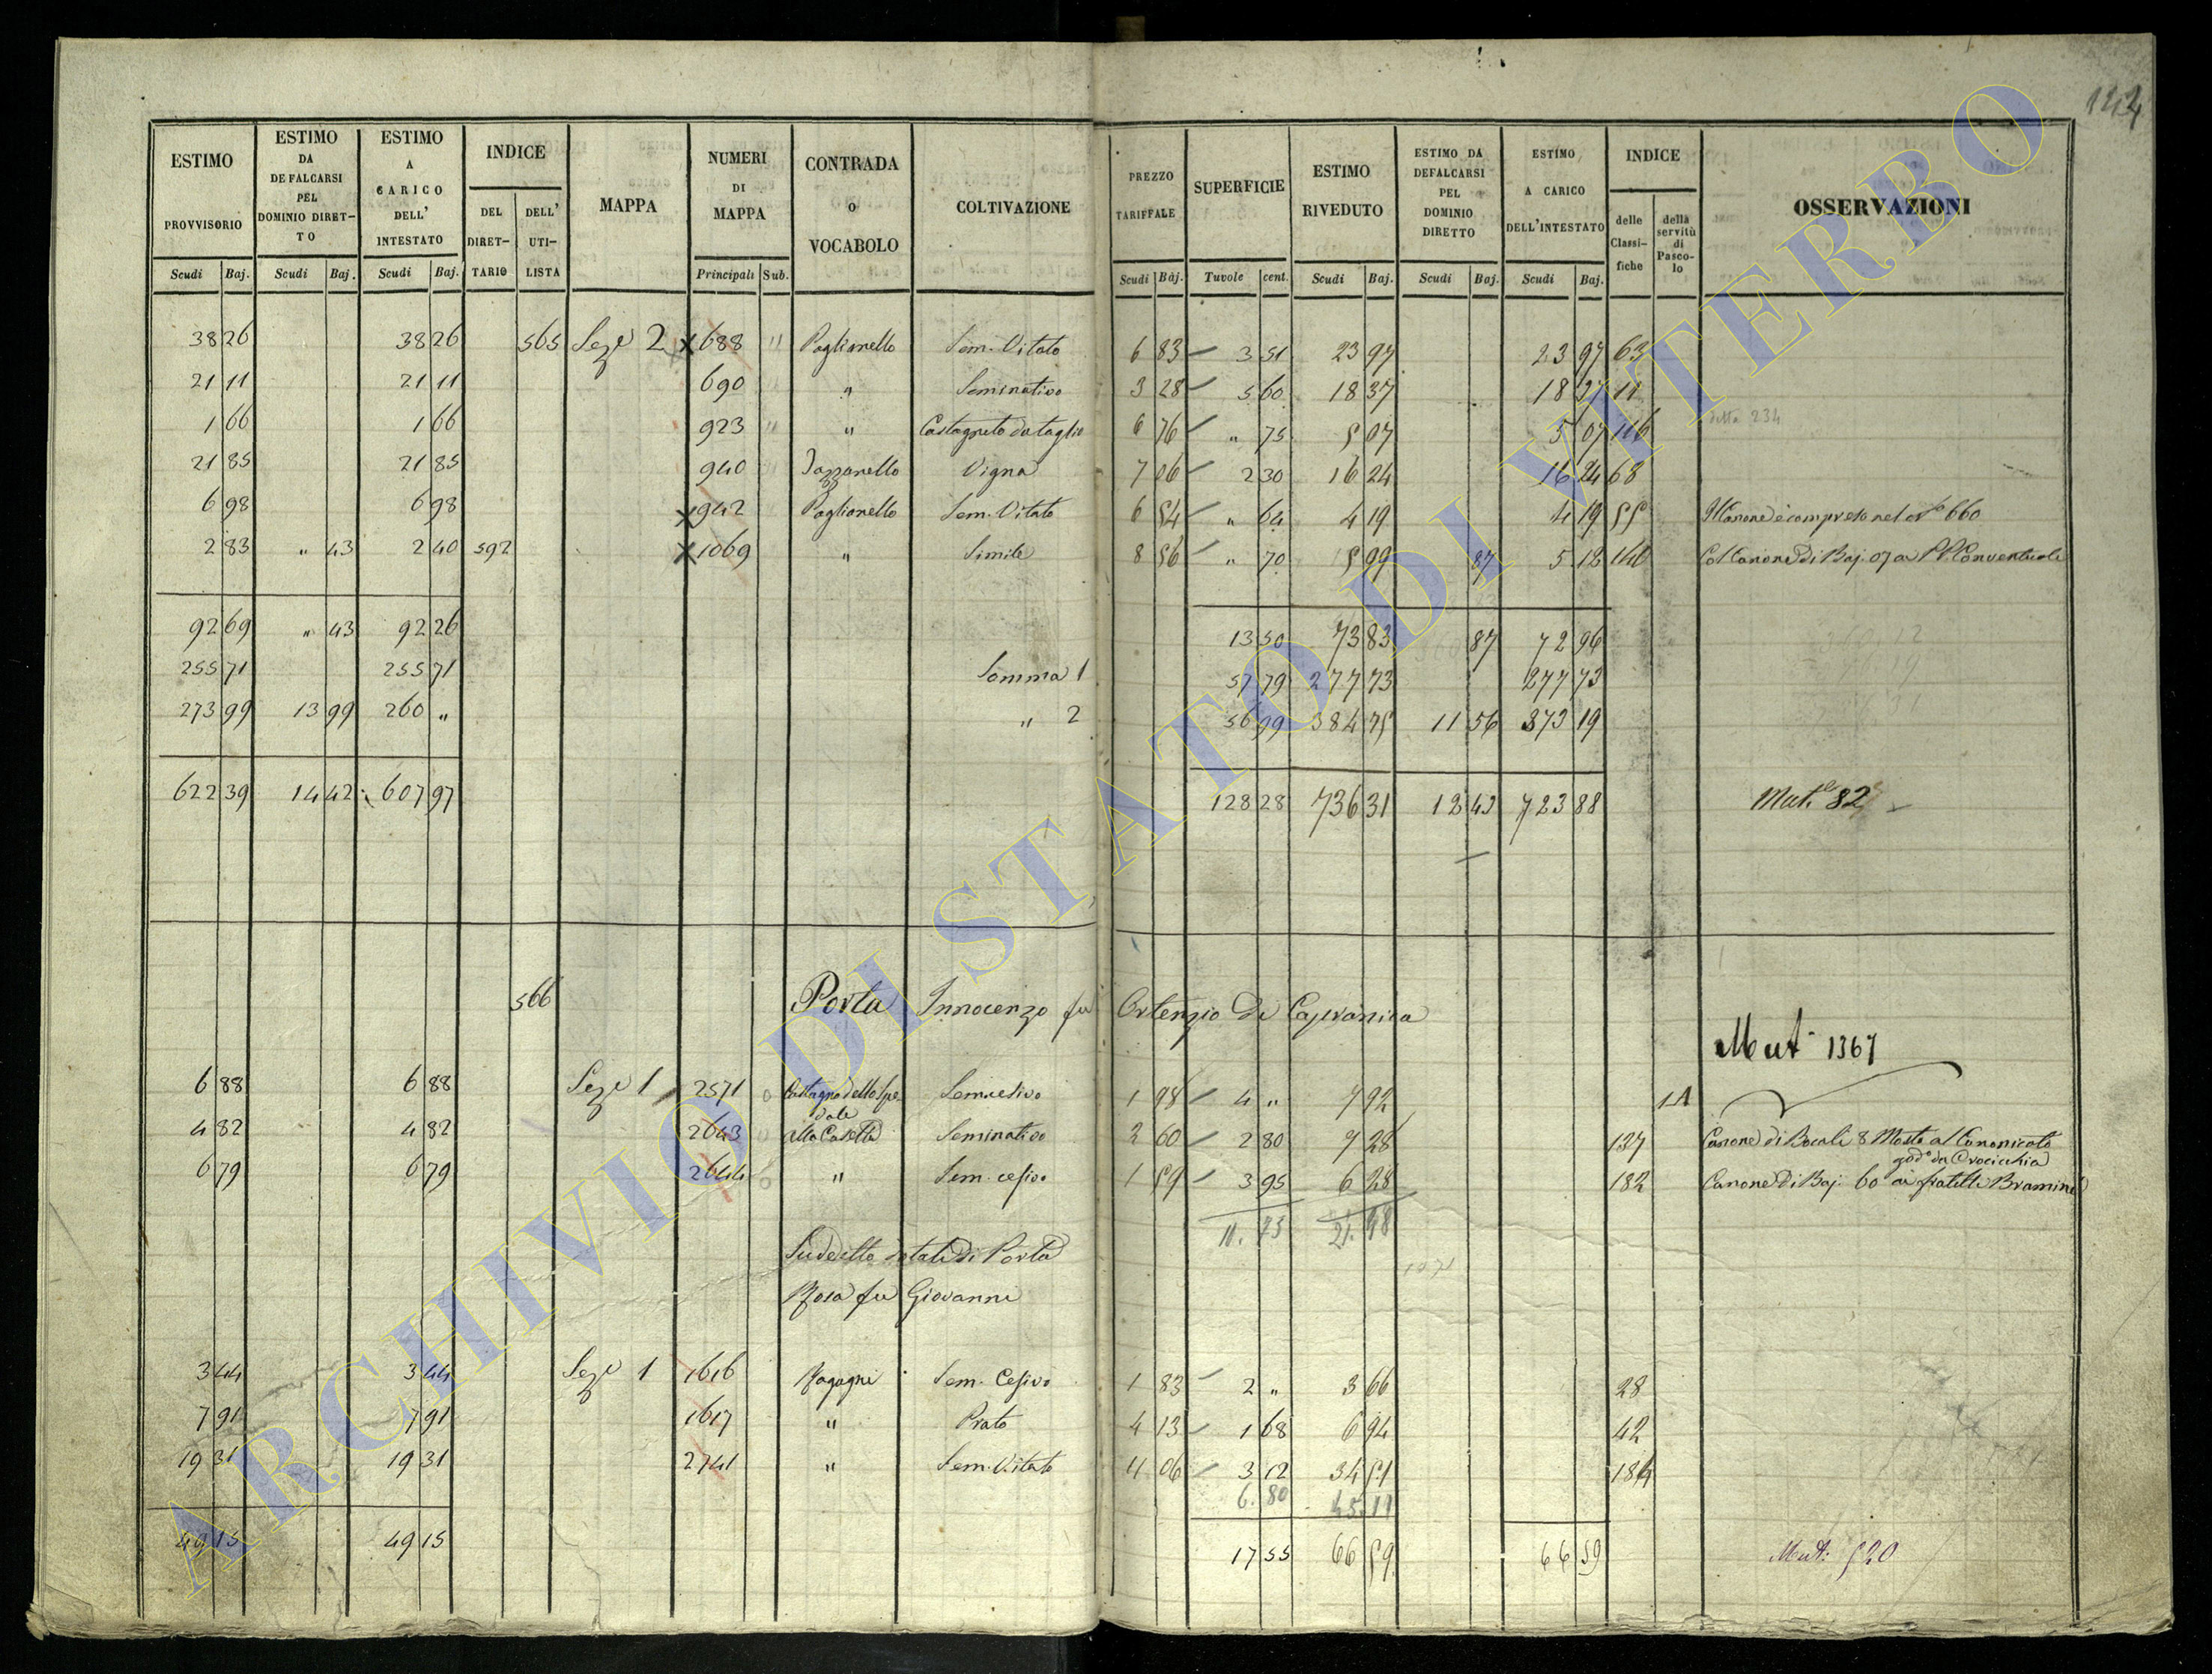 144
ESTIMO PROVVISORIO | ESTIMO DA DEFALCARSI PEL DOMINIO DIRETTO | ESTIMO A CARICO DELL' INTESTATO | INDICE | MAPPA | NUMERI DI MAPPA | CONTRADA O VOCABOLO | COLTIVAZIONE | PREZZO TARIFFALE | SUPERFICIE | ESTIMO RIVEDUTO | ESTIMO DA DEFALCARSI PEL DOMINIO DIRETTO | ESTIMO A CARICO DELL'INTESTATO | INDICE | OSSERVAZIONI
DEL DIRETTARIO | DELL' UTILISTA | delle Classifiche | della servitù di Pascolo
Scudi | Baj. | Scudi | Baj. | Scudi | Baj. | Principali | Sub. | Scudi | Baj. | Tuvole | cent. | Scudi | Baj. | Scudi | Baj. | Scudi | Baj.
38 26 | 38 26 | 565 | Seze 2 | 688 | " | Paglianello | Sem. Vitato | 6 83 | 3 51 | 23 97 | 23 97 | 63
21 11 | 21 11 | 690 | " | Seminativo | 3 28 | 5 60 | 18 37 | 18 37 | 11
1 66 | 1 66 | 923 | " | " | Castagneto da taglio | 6 76 | " 75 | 5 07 | 5 07 | 116 | 234
21 85 | 21 85 | 940 | Jazzanello | Vigna | 7 06 | 2 30 | 16 24 | 16 24 | 68
6 98 | 6 98 | 942 | Paglianello | Sem. Vitato | 6 54 | " 64 | 4 19 | 4 19 | 55 | Il Canone è compreso nel N° 660
2 83 | " 43 | 2 40 | 592 | 1069 | " | Simile | 8 56 | " 70 | 5 99 | 87 | 5 12 | 140 | Col Canone di Baj. 07 a PP. Conventuali
92 69 | " 43 | 92 26 | 13 50 | 73 83 | 87 | 72 96
255 71 | 255 71 | Somma 1 | 57 79 | 277 73 | 277 73
273 99 | 13 99 | 260 " | " 2 | 56 99 | 384 75 | 11 56 | 373 19
622 39 | 14 42 | 607 97 | 128 28 | 736 31 | 12 43 | 723 88 | Mut.e 82
566 | Porta Innocenzo fu Ortenzio di Capranica
Mut 1367
6 88 | 6 88 | Seze 1 | 2571 | Castagno dello Spedale | Semicesivo | 1 98 | 4 " | 7 92 | 1A
4 82 | 4 82 | 2643 | alla Casetta | Seminativo | 2 60 | 2 80 | 7 28 | 127 | Canone di Bocali 8 Mosto al Canonicato god.o da Crocicchia
6 79 | 6 79 | 2644 | " | Sem. cesivo | 1 59 | 3 95 | 6 28 | 182 | Canone di Baj. 60 ai fratelli Bramini
11. 75 | 21. 48
Sudetto dotale di Porta
Rosa fu Giovanni
3 44 | 3 44 | Seze 1 | 1616 | Ragagni | Sem. Cesivo | 1 83 | 2 " | 3 66 | 28
7 91 | 7 91 | 1617 | " | Prato | 4 13 | 1 68 | 6 94 | 42
19 31 | 19 31 | 2741 | " | Sem. Vitato | 11 06 | 3 12 | 34 51 | 184
6. 80 | 45. 11
49 15 | 49 15 | 17 55 | 66 59 | 66 59 | Mut: 520
ARCHIVIO DI STATO DI VITERBO